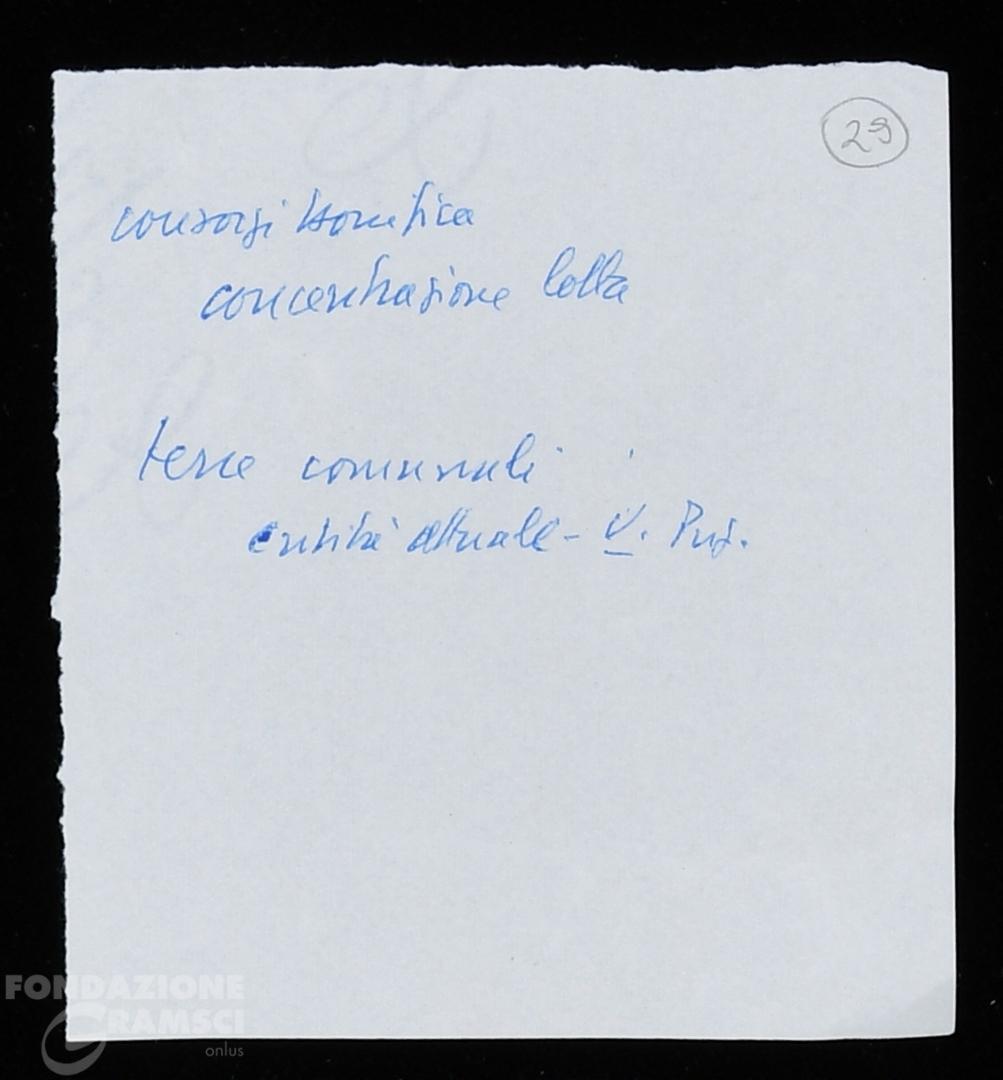 29
consorzi bonifica
concentrazione lotta
terre comunali
entità attuale - V.
FONDAZIONE
GRAMSCI
onlus